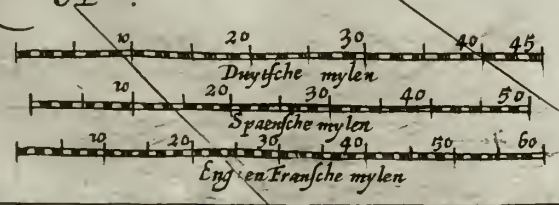 10 20 30 40 45
Duytsche mylen
10 20 30 40 50
Spaensche mylen
10 20 30 40 50 60
Eng en Fransche mylen